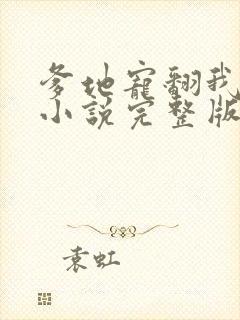 爹地宠翻我
小说完整版
袁虹